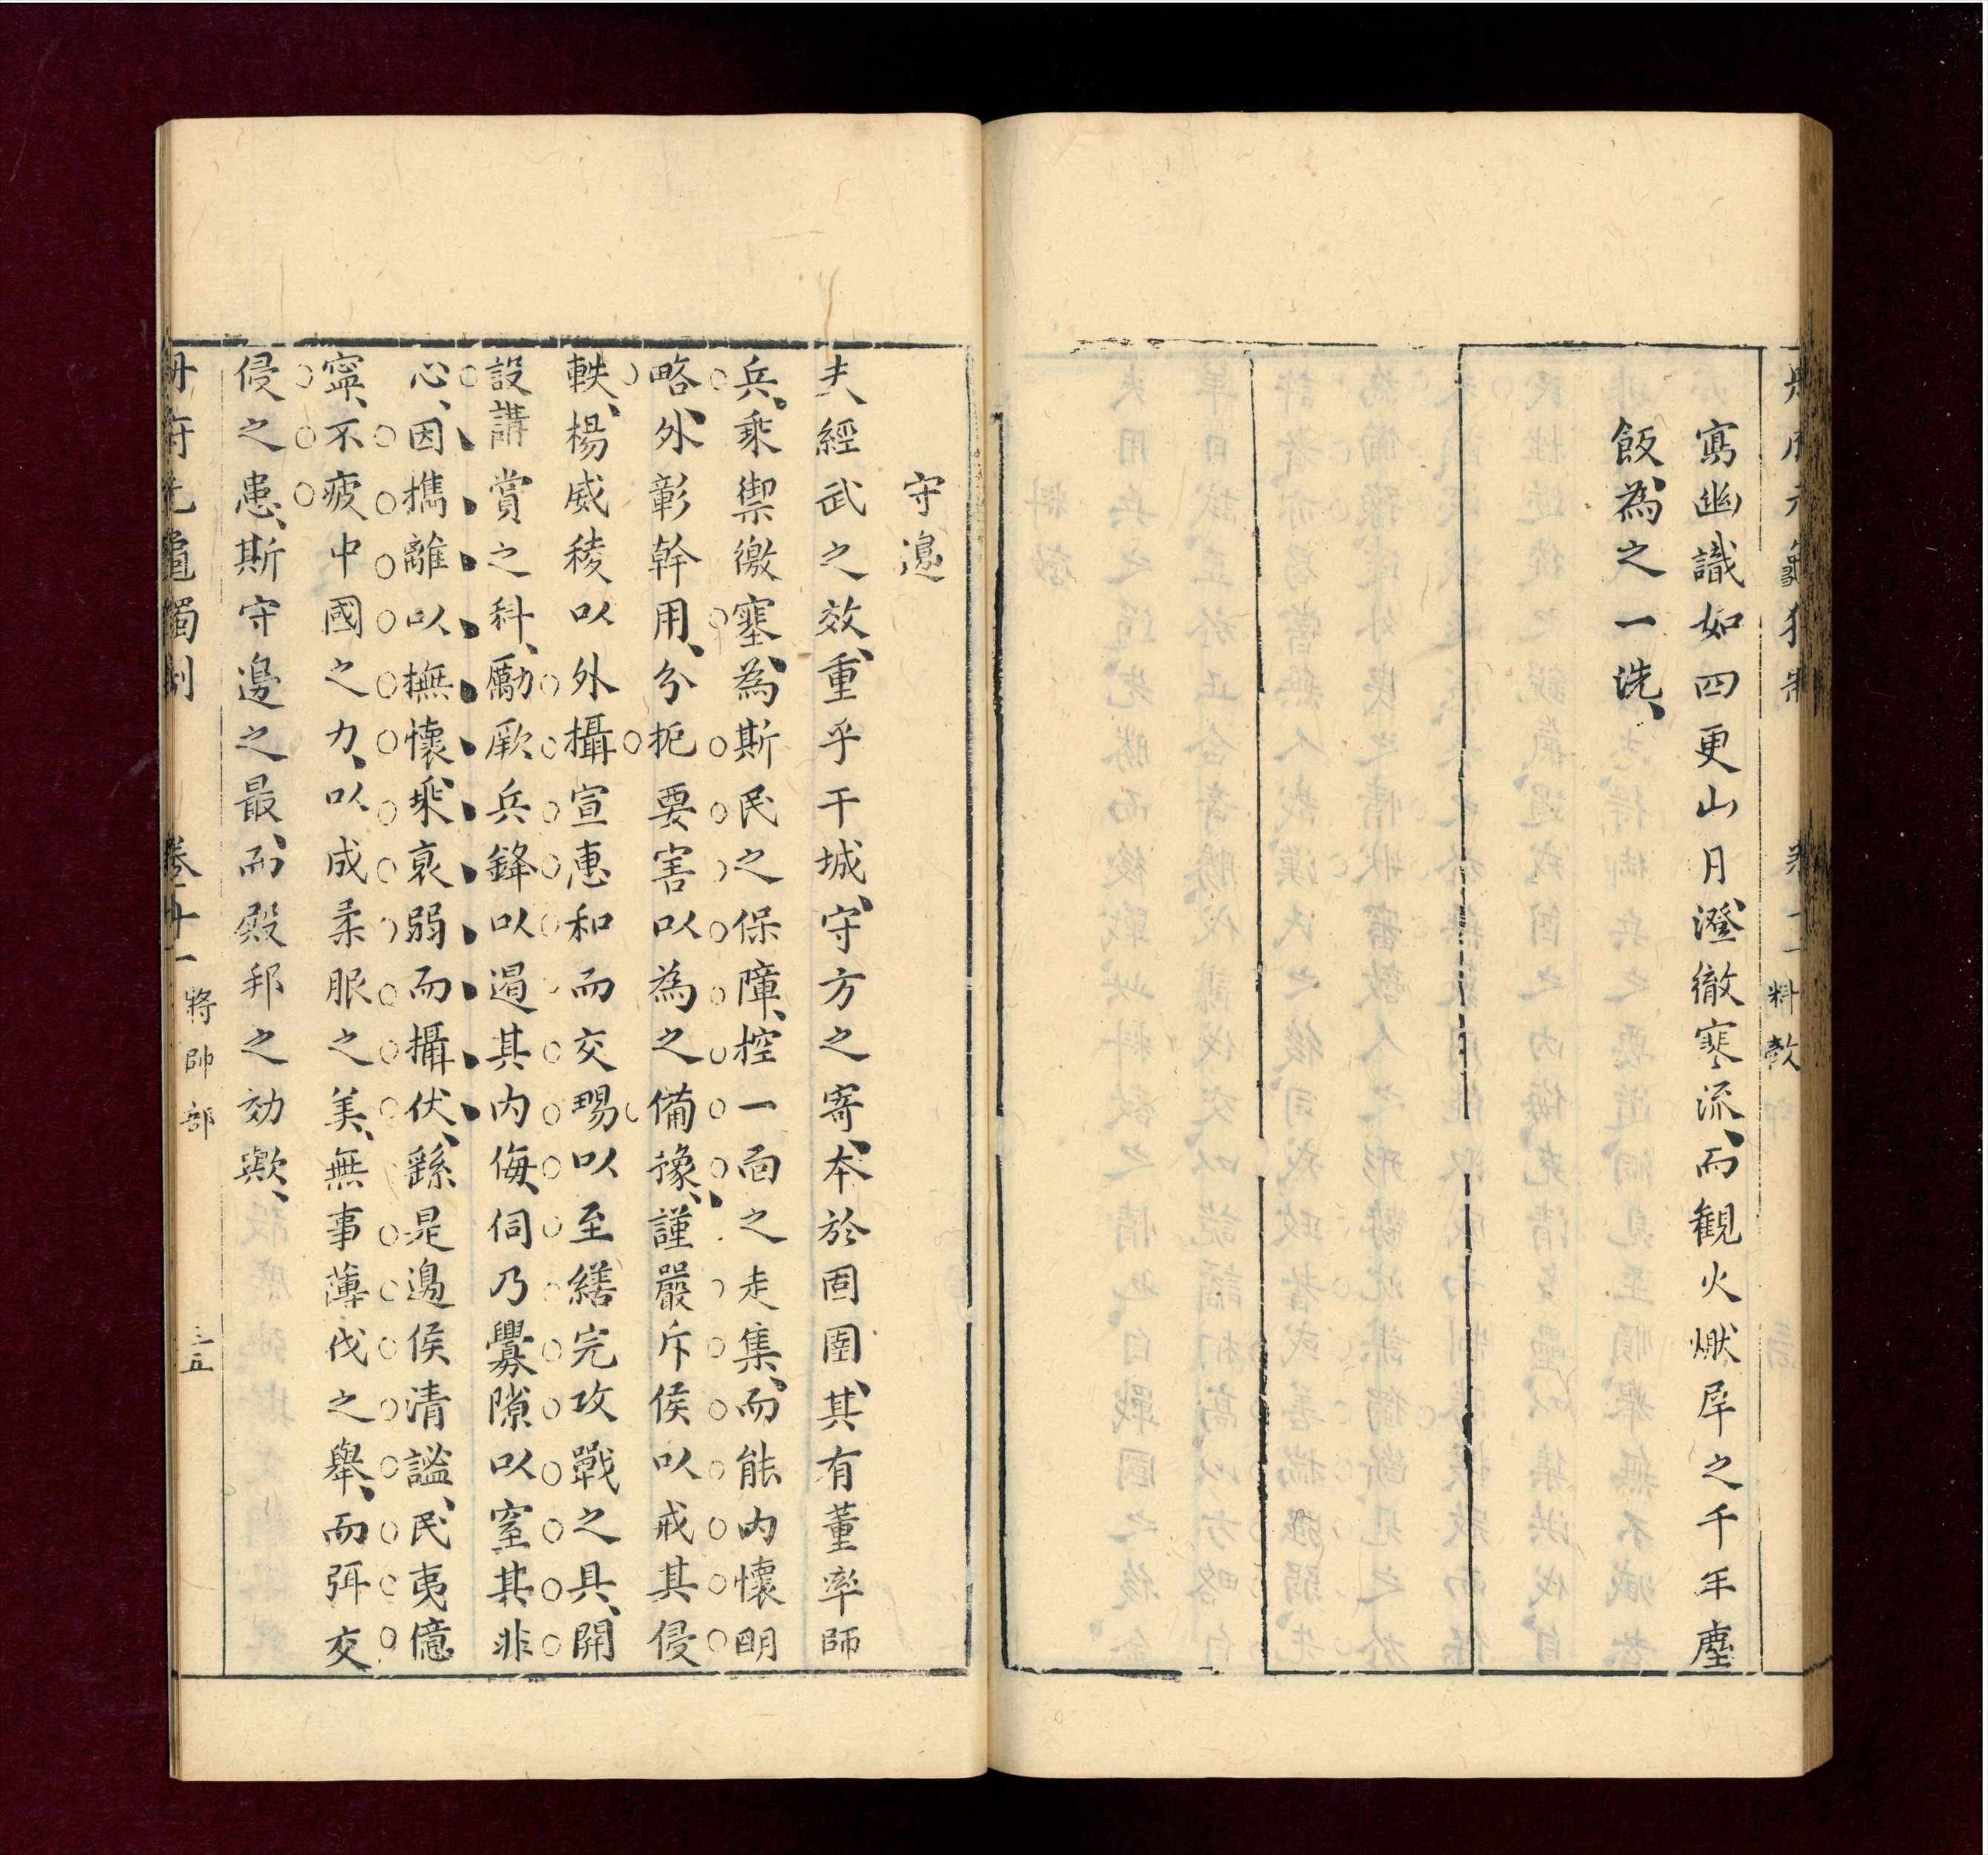 寫幽識如四更山月澄徹寒流而觀火燃犀之千年塵
飯為之一洗
料敵
守邊
夫經武之效重乎干城守方之寄本於固圉其有董率師
兵乘禦徼塞為斯民之保障控一面之走集而能內懷明
略外彰幹用分扼要害以為之備豫謹嚴斥候以戒其侵
軼楊威稜以外攝宣惠和而交暢以至繕完攻戰之具開
設講賞之科勵厥兵鋒以遏其內侮伺乃釁隙以窒其非
心因攜離以撫懷乘衰弱而攝伏繇是邊候清謐民夷億
寧不疲中國之力以成柔服之美無事薄伐之舉而弭交
侵之患斯守邊之最而殿邦之効歟
冊府元龜獨制 卷廿一 將帥部 三五